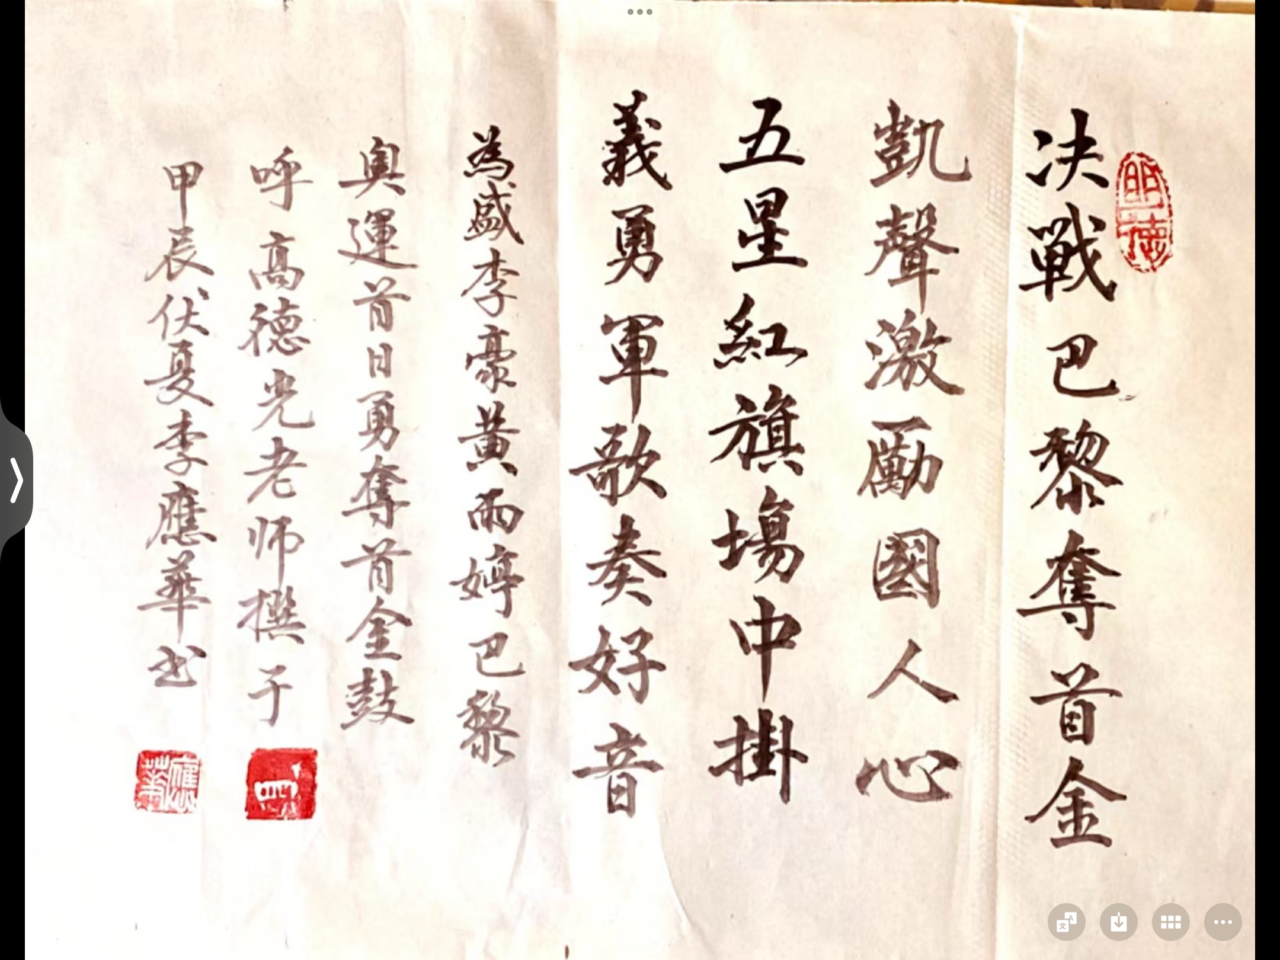 明德
决戰巴黎奪首金
凱聲激勵國人心
五星紅旗場中掛
義勇軍歌奏好音
為盛李豪黄雨婷巴黎
奥運首日勇奪首金鼓
呼高德光老师撰于
甲辰伏夏李應華书
應華